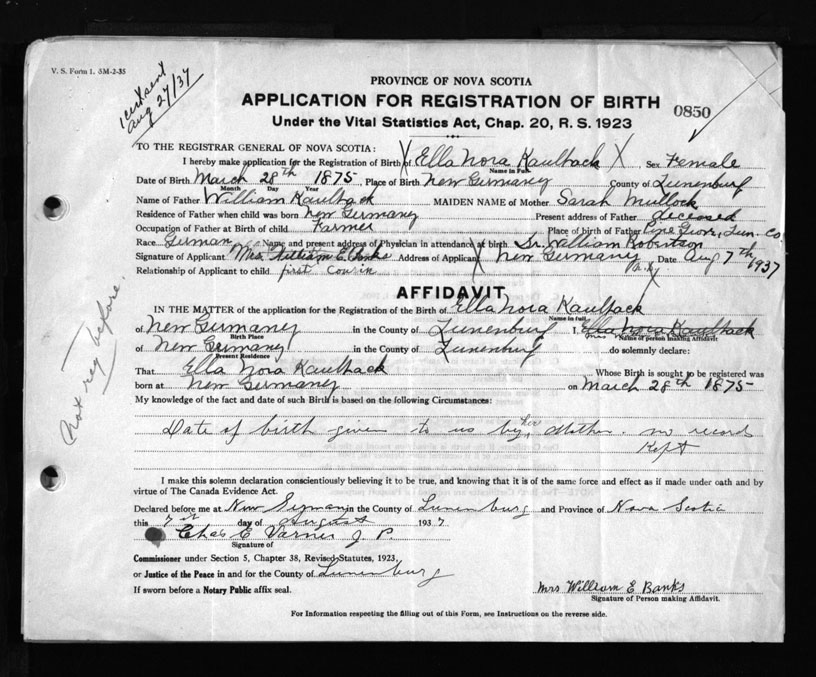 V. S. Form 1. 5M-2-35
Aug 27/37
PROVINCE OF NOVA SCOTIA
APPLICATION FOR REGISTRATION OF BIRTH
0850
Under the Vital Statistics Act, Chap. 20, R. S. 1923
TO THE REGISTRAR GENERAL OF NOVA SCOTIA:
I hereby make application for the Registration of Birth of Ella Nora Kaulback X Sex Female
Name in Full
Date of Birth March 28th 1875, Place of Birth New Germany County of Lunenburg
Month Day Year
Name of Father William Kaulback MAIDEN NAME of Mother Sarah Mullock
Residence of Father when child was born New Germany Present address of Father deceased
Occupation of Father at Birth of child Farmer Place of birth of Father Pine Grove, Lun. Co.
Race German Name and present address of Physician in attendance at birth Dr. William Robertson
Signature of Applicant Mrs. William E. Banks Address of Applicant New Germany Date Aug 7th 1937
Relationship of Applicant to child first cousin
AFFIDAVIT
IN THE MATTER of the application for the Registration of the Birth of Ella Nora Kaulback
Name in full
of New Germany in the County of Lunenburg I, Ella Nora Kaulback
Birth Place Name of person making Affidavit
of New Germany in the County of Lunenburg do solemnly declare:
Present Residence
That Ella Nora Kaulback Whose Birth is sought to be registered was
born at New Germany on March 28th 1875
My knowledge of the fact and date of such Birth is based on the following Circumstances:
Not reg before.
Date of birth given to us by her Mother. no records
Kept
I make this solemn declaration conscientiously believing it to be true, and knowing that it is of the same force and effect as if made under oath and by
virtue of The Canada Evidence Act.
Declared before me at New Germany in the County of Lunenburg and Province of Nova Scotia
this 7 day of August 1937
Chas E Varner J. P.
Signature of
Commissioner under Section 5, Chapter 38, Revised Statutes, 1923,
or Justice of the Peace in and for the County of Lunenburg
If sworn before a Notary Public affix seal.
Mrs William E Banks
Signature of Person making Affidavit.
For Information respecting the filling out of this Form, see Instructions on the reverse side.